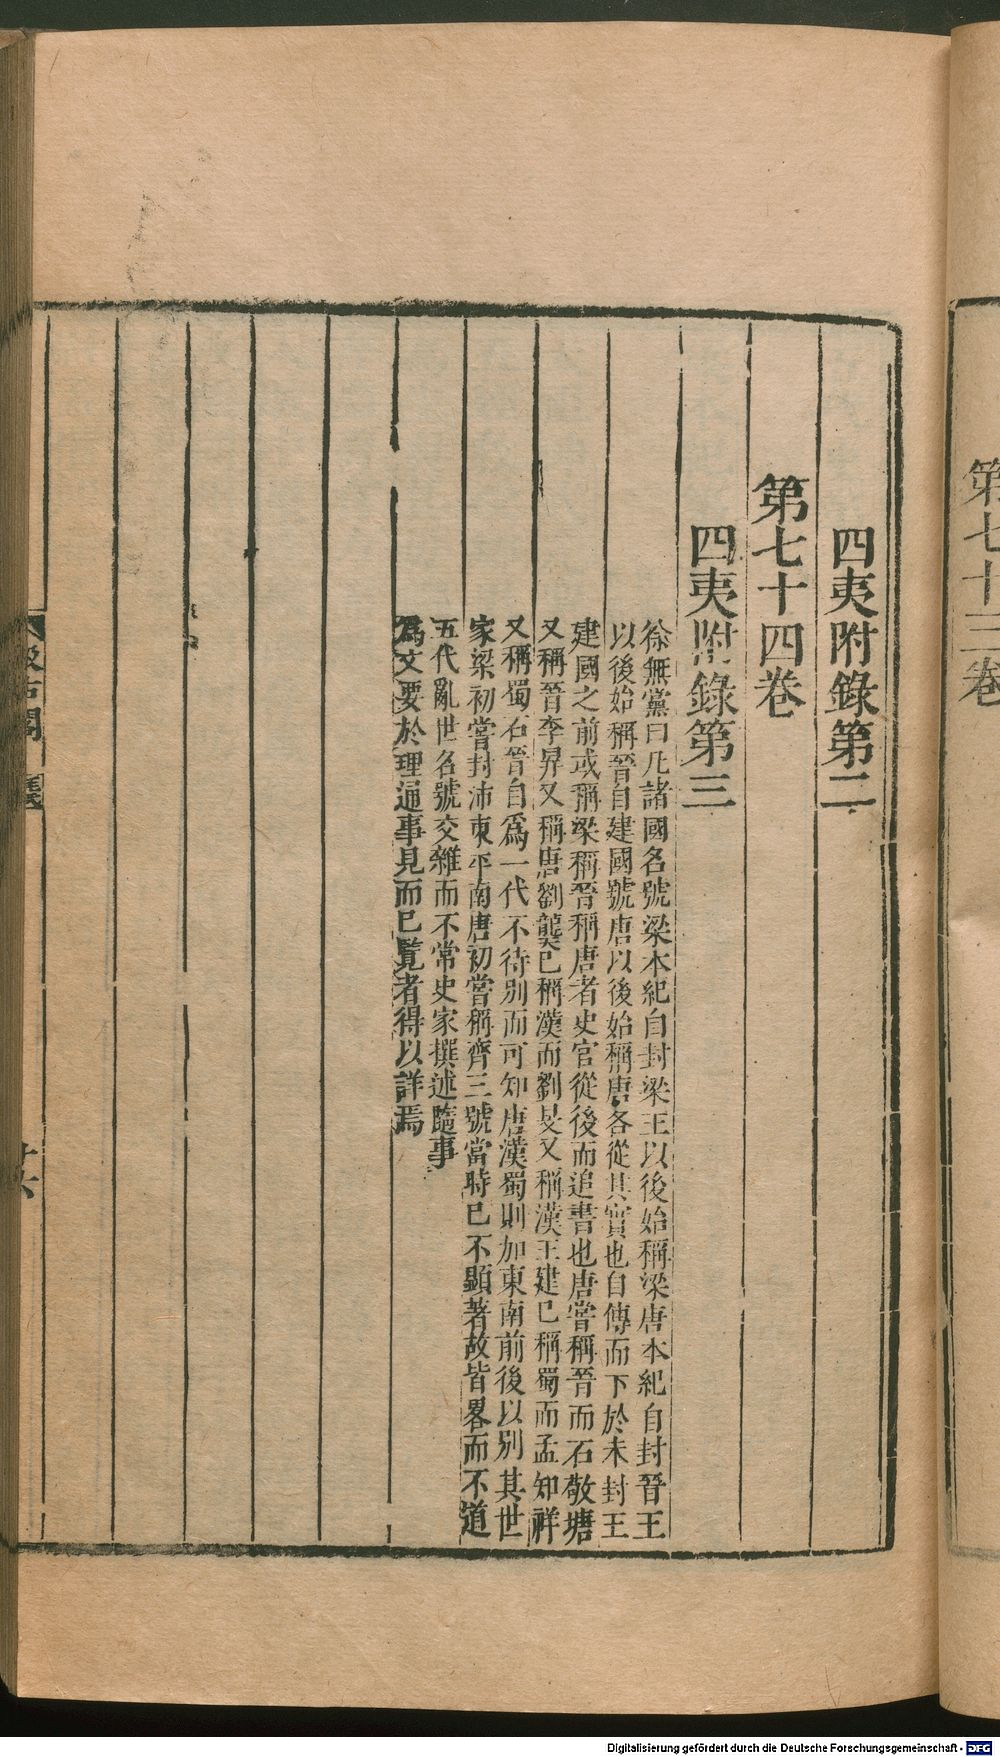 第七十三卷
四夷附錄第二
第七十四卷
四夷附錄第三
徐無黨曰凡諸國名號梁本紀自封梁王以後始稱梁唐本紀自封晉王
以後始稱晉自建國號唐以後始稱唐各從其實也自傳而下於未封王
建國之前或稱梁稱晉稱唐者史官從後而追書也唐嘗稱晉而石敬塘
又稱晉李昇又稱唐劉龑已稱漢而劉旻又稱漢王建已稱蜀而孟知祥
又稱蜀石晉自爲一代不待別而可知唐漢蜀則加東南前後以別其世
家梁初嘗封沛東平南唐初嘗稱齊三號當時已不顯著故皆畧而不道
五代亂世名號交雜而不常史家撰述隨事
爲文要於理通事見而已覽者得以詳焉
汲古閣
Digitalisierung gefördert durch die Deutsche Forschungsgemeinschaft - DFG